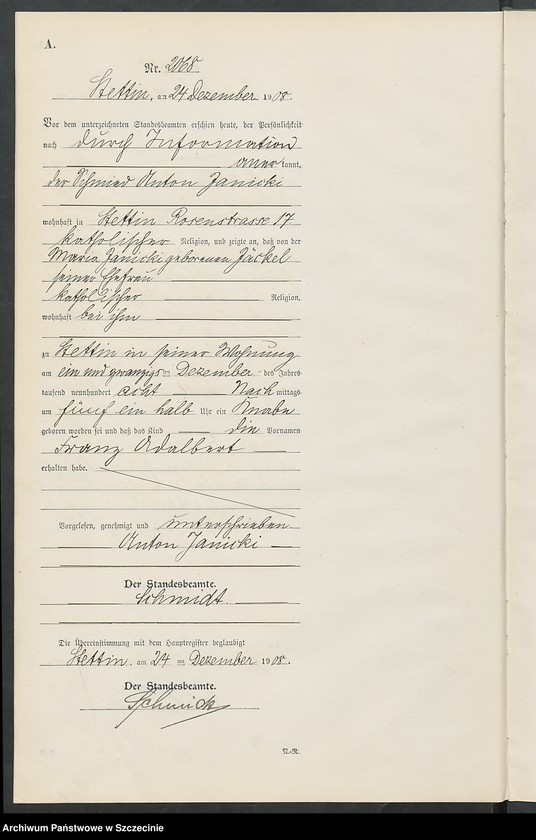 A.
Nr. 2068
Stettin, am 24 Dezember 1908.
Vor dem unterzeichneten Standesbeamten erschien heute, der Persönlichkeit
nach durch Information
anerkannt,
der Schmied Anton Janicki
wohnhaft in Stettin Rosenstrasse 17
katholischer Religion, und zeigte an, daß von der
Maria Janicki geborenen Jäckel
seiner Ehefrau
katholischer Religion,
wohnhaft bei ihm
zu Stettin in seiner Wohnung
am ein und zwanzigsten Dezember des Jahres
tausend neunhundert acht Nachmittags
um fünf ein halb Uhr ein Knabe
geboren worden sei und daß das Kind die Vornamen
Franz Adalbert
erhalten habe.
Vorgelesen, genehmigt und unterschrieben.
Anton Janicki
Der Standesbeamte.
Schmidt
Die Übereinstimmung mit dem Hauptregister beglaubigt
Stettin, am 24 ten Dezember 1908.
Der Standesbeamte.
N.-R.
Archiwum Państwowe w Szczecinie